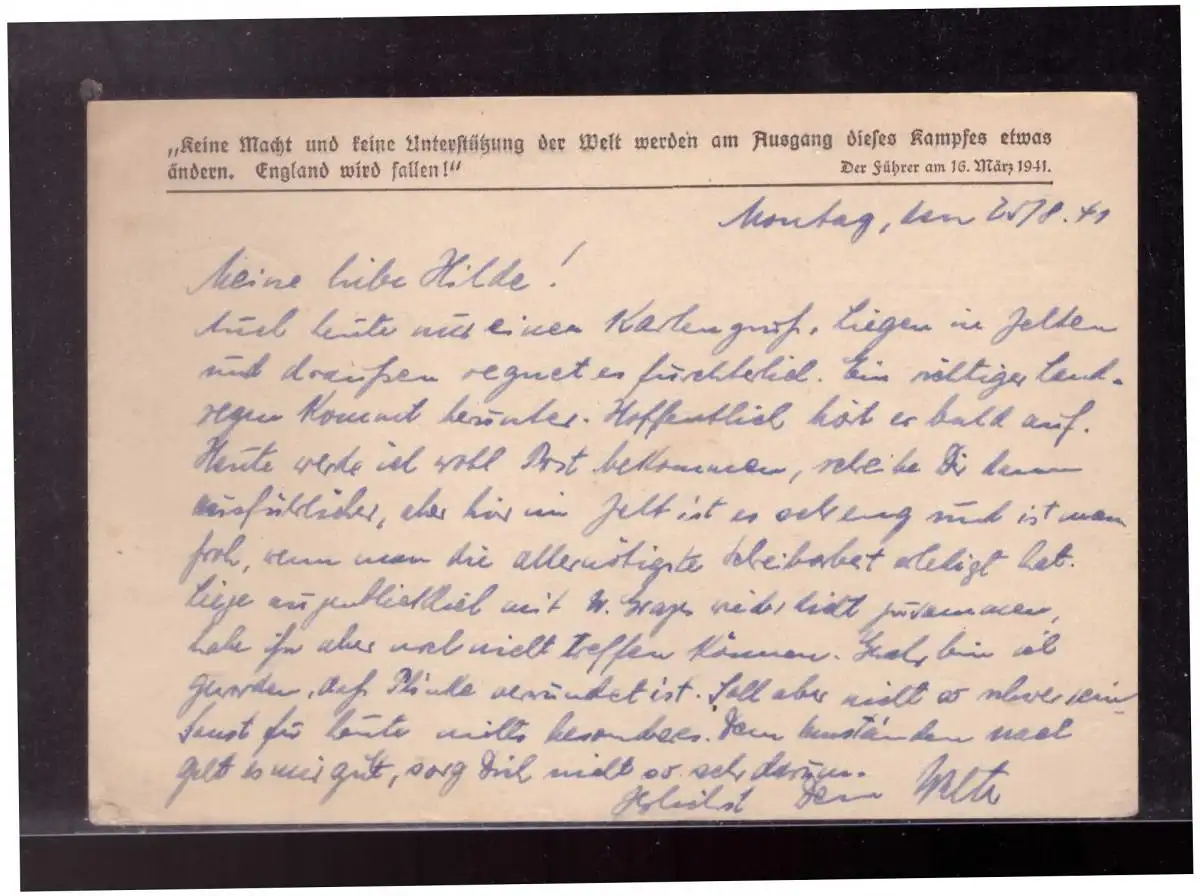 „Keine Macht und keine Unterstützung der Welt werden am Ausgang dieses Kampfes etwas
ändern. England wird fallen!“ Der Führer am 16. März 1941.
Montag, den 25/8. 41
Meine liebe Hilde!
Auch heute nur einen Kartengruß. Liegen in Zelten
und draußen regnet es fürchterlich. Ein richtiger Land-
regen kommt herunter. Hoffentlich hört er bald auf.
Heute werde ich wohl Post bekommen, schreibe Dir dann
ausführlicher, aber hier im Zelt ist es sehr eng und ist man
froh, wenn man die allernötigste Schreibarbeit erledigt hat.
Liege augenblicklich mit W. zusammen,
habe ihn aber noch nicht treffen können. bin ich
geworden, daß verwundet ist. Soll aber nicht so schwer sein
Sonst für heute nichts besonderes. Den Umständen nach
geht es mir gut, sorg Dich nicht so sehr darum.
Herzlichst Dein